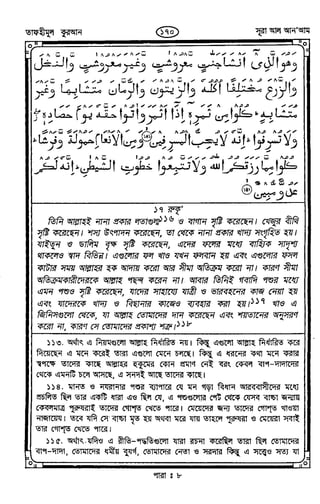 তাফহীমুল কুরআন
১৭০
সূরা আল আন'আম
وَهُوَ الَّذِي أَنْشَأَ جَنَّتٍ مَعْرُوشَتٍ وَغَيْرَ مَعْرُوشَتٍ وَالنَّخْلَ
وَالزَّرْعَ مُخْتَلِفًا أُكُلُهُ وَالزَّيْتُونَ وَالرُّمَّانَ مُتَشَابِهًا وَغَيْرَ
مُتَشَابِهٍ كُلُوا مِنْ ثَمَرِهِ إِذَا أَثْمَرَ وَأْتُوا حَقَّهُ يَوْمَ حَصَادِهِ
وَلَا تُسْرِفُوا إِنَّهُ لَا يُحِبُّ الْمُسْرِفِينَ وَمِنَ الْأَنْعَامِ حَمُولَةً وَفَرْشًا
كُلُوا مِمَّا رَزَقَكُمُ اللَّهُ وَلَا تَتَّبِعُوا خُطُوتِ الشَّيْطَنِ إِنَّهُ لَكُمْ
عَدُوٌّ مُبِينٌ
১৭ রুকূ'
তিনি আল্লাহই নানা প্রকার লতাগুল্ম১১৬ ও বাগান সৃষ্টি করেছেন। খেজুর বীথি
সৃষ্টি করেছেন। শস্য উৎপাদন করেছেন, তা থেকে নানা প্রকার খাদ্য সংগৃহিত হয়।
যাইতুন ও ডালিম বৃক্ষ সৃষ্টি করেছেন, এদের ফলের মধ্যে বাহ্যিক সাদৃশ্য
থাকলেও স্বাদ বিভিন্ন। এগুলোর ফল খাও যখন ফলবান হয় এবং এগুলোর ফসল
কাটার সময় আল্লাহর হক আদায় করো আর সীমা অতিক্রম করো না। কারণ সীমা
অতিক্রমকারীদেরকে আল্লাহ পছন্দ করেন না। আবার তিনিই গবাদি পশুর মধ্যে
এমন পশুও সৃষ্টি করেছেন, যাদের সাহায্যে যাত্রী ও ভারবহনের কাজ নেয়া হয়
এবং যাদেরকে খাদ্য ও বিছানার কাজেও ব্যবহার করা হয়।১১৭ খাও এ
জিনিসগুলো থেকে, যা আল্লাহ তোমাদের দান করেছেন এবং শয়তানের অনুসরণ
করো না, কারণ সে তোমাদের প্রকাশ্য শত্রু।১১৮
১১৩. অর্থাৎ এ নিয়মগুলো আল্লাহ নির্ধারিত নয়। কিন্তু এগুলো আল্লাহ নির্ধারিত করে
দিয়েছেন এ মনে করেই তারা এগুলো মেনে চলছে। কিন্তু এ ধরনের কথা মনে করার
স্বপক্ষে তাদের কাছে আল্লাহর হুকুমের কোন প্রমাণ নেই বরং কেবল বাপ-দাদাদের
থেকে এমনটি চলে আসছে, এ সনদই আছে তাদের কাছে।
১১৪. মানত ও নযরানার পশুর ব্যাপারে যে মন গড়া বিধান আরববাসীদের মধ্যে
প্রচলিত ছিল তার একটি ধারা এও ছিল যে, এ পশুগুলোর পেট থেকে যেসব বাচ্চা জন্মায়
কেবলমাত্র পুরুষরাই তাদের গোশ্‌ত খেতে পারে। মেয়েদের জন্য তাদের গোশ্‌ত খাওয়া
নাজায়েয। তবে যদি সে বাচ্চা মৃত হয় অথবা মরে যায় তাহলে পুরুষরা ও মেয়েরা সবাই
তার গোশ্‌ত খেতে পারে।
১১৫. অর্থাৎ-যদিও এ রীতি-পদ্ধতিগুলো যারা রচনা করেছিল তারা ছিল তোমাদের
বাপ-দাদা, তোমাদের ধর্মীয় বুযর্গ, তোমাদের নেতা ও সরদার কিন্তু এ সত্ত্বেও সত্য যা
পারা : ৮